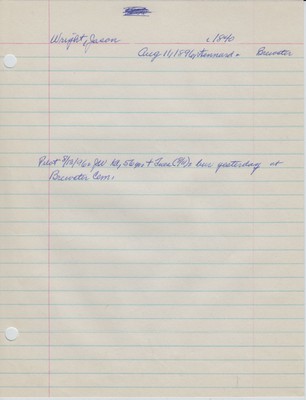 Wright, Jason c1840
Aug 11, 1896, Kennard. Brewster
Pilot 8/13/96: JW, 56yrs + (90), bur yesterday at
Brewster Cem.